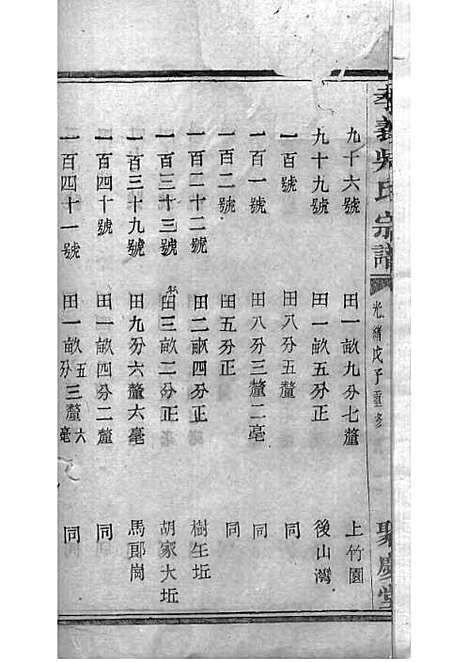 孝義吳氏宗譜 光緒戊子重修 聚慶堂
九十六號 田一畝九分七釐 上竹園
九十九號 田一畝五分正 後山灣
一百號 田八分五釐 同
一百一號 田八分三釐二毫 同
一百二號 田五分正 同
一百二十二號 田二畝四分正 樹生坵
一百三十三號 田三畝二分正 胡家大坵
一百三十九號 田九分六釐六毫 馬郎崗
一百四十號 田一畝四分二釐 同
一百四十一號 田一畝五分三釐六毫 同